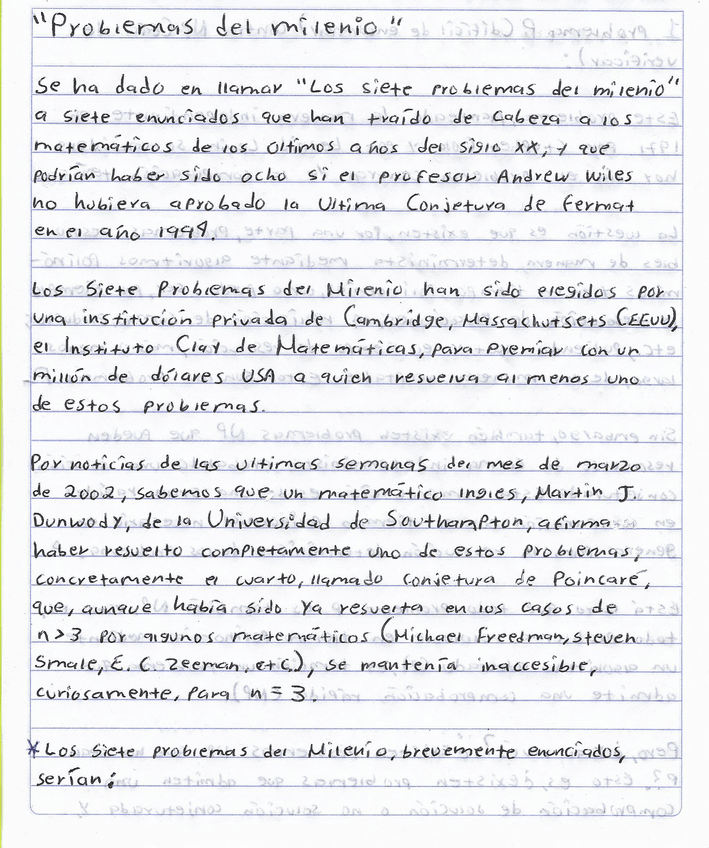 "Problemas del milenio"
Se ha dado en llamar "Los siete problemas del milenio"
a siete enunciados que han traído de cabeza a los
matemáticos de los últimos años del siglo XX, y que
podrían haber sido ocho si el profesor Andrew Wiles
no hubiera aprobado la Ultima Conjetura de Fermat
en el año 1994.
Los Siete Problemas del Milenio han sido elegidos por
una institución privada de Cambridge, Massachutsets (EEUU),
el Instituto Clay de Matemáticas, para Premiar con un
millón de dólares USA a quien resuelva al menos uno
de estos problemas.
Por noticias de las ultimas semanas del mes de marzo
de 2002, sabemos que un matemático ingles, Martin J.
Dunwody, de la Universidad de Southampton, afirma
haber resuelto completamente uno de estos problemas,
concretamente el cuarto, llamado conjetura de Poincaré,
que, aunque había sido ya resuelta en los casos de
n>3 por algunos matemáticos (Michael Freedman, Steven
Smale, E. C. Zeeman, etc.), se mantenía inaccesible,
curiosamente, para n = 3.
* Los Siete problemas del Milenio, brevemente enunciados,
serían: